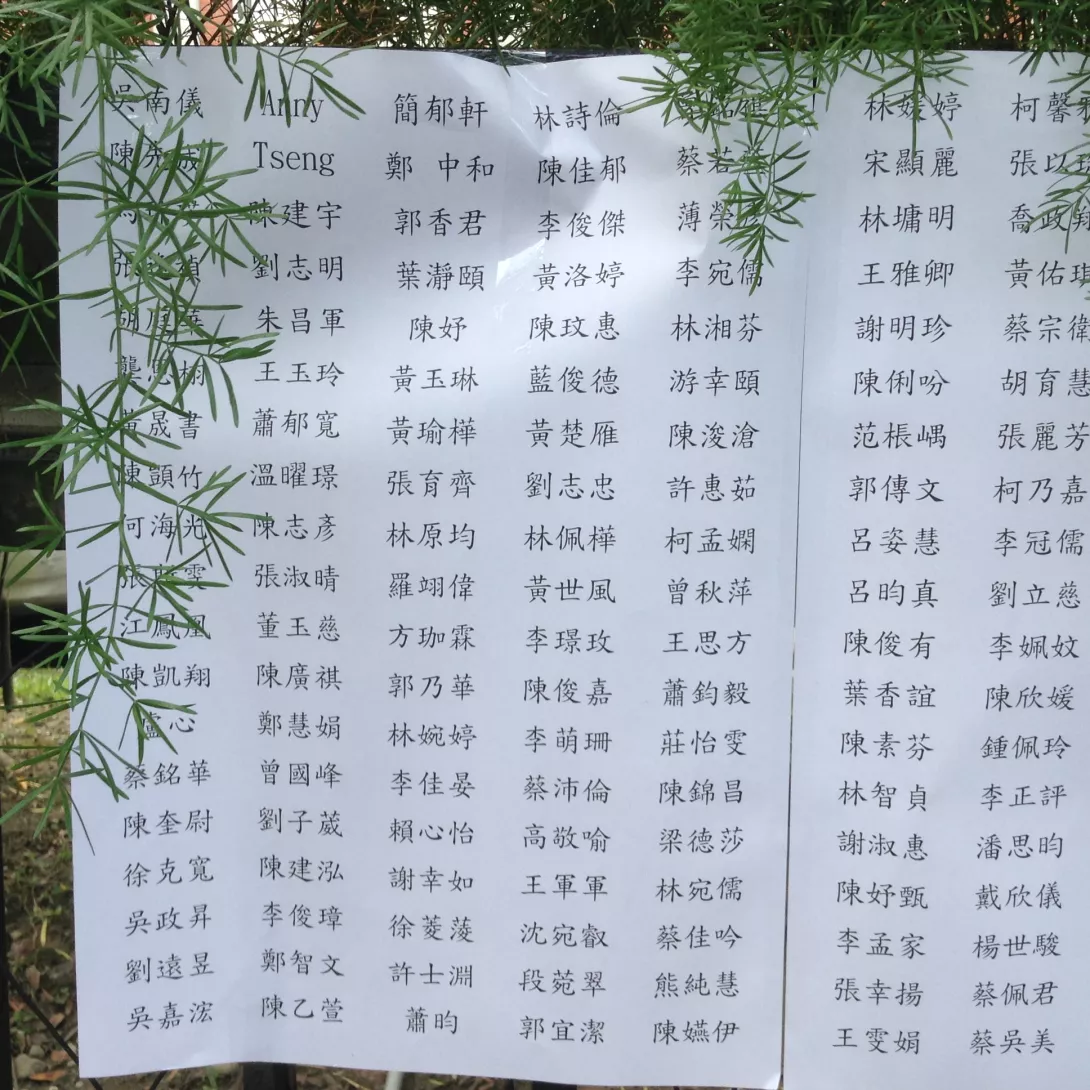 吳南儀 Anny 簡郁軒 林詩倫
Tseng 鄭 中和 陳佳郁
陳建宇 郭香君 李俊傑
劉志明 葉瀞頤 黃洛婷 李宛儒
朱昌軍 陳妤 陳玟惠 林湘芬
龔思栩 王玉玲 黃玉琳 藍俊德 游幸頤
黃晟書 蕭郁寬 黃瑜樺 黃楚雁 陳浚滄
陳顗竹 溫曜璟 張育齊 劉志忠 許惠茹
何海光 陳志彥 林原均 林佩樺 柯孟嫻
張淑晴 羅翊偉 黃世風 曾秋萍
江鳳凰 董玉慈 方珈霖 李璟玫 王思方
陳凱翔 陳廣祺 郭乃華 陳俊嘉 蕭鈞毅
盧心 鄭慧娟 林婉婷 李萌珊 莊怡雯
蔡銘華 曾國峰 李佳晏 蔡沛倫 陳錦昌
陳奎尉 劉子葳 賴心怡 高敬喻 梁德莎
徐克寬 陳建泓 謝幸如 王軍軍 林宛儒
吳政昇 李俊璋 徐菱薐 沈宛叡 蔡佳吟
劉遠昱 鄭智文 許士淵 段菀翠 熊純慧
吳嘉浤 陳乙萱 蕭昀 郭宜潔 陳嬿伊
林媛婷 柯馨
宋顯麗 張以
林墉明 喬政
王雅卿 黃佑琪
謝明珍 蔡宗衛
陳俐吩 胡育慧
范棖嵎 張麗芳
郭傳文 柯乃嘉
呂姿慧 李冠儒
呂昀真 劉立慈
陳俊有 李姵妏
葉香誼 陳欣媛
陳素芬 鍾佩玲
林智貞 李正評
謝淑惠 潘思昀
陳妤甄 戴欣儀
李孟家 楊世駿
張幸揚 蔡佩君
王雯娟 蔡吳美